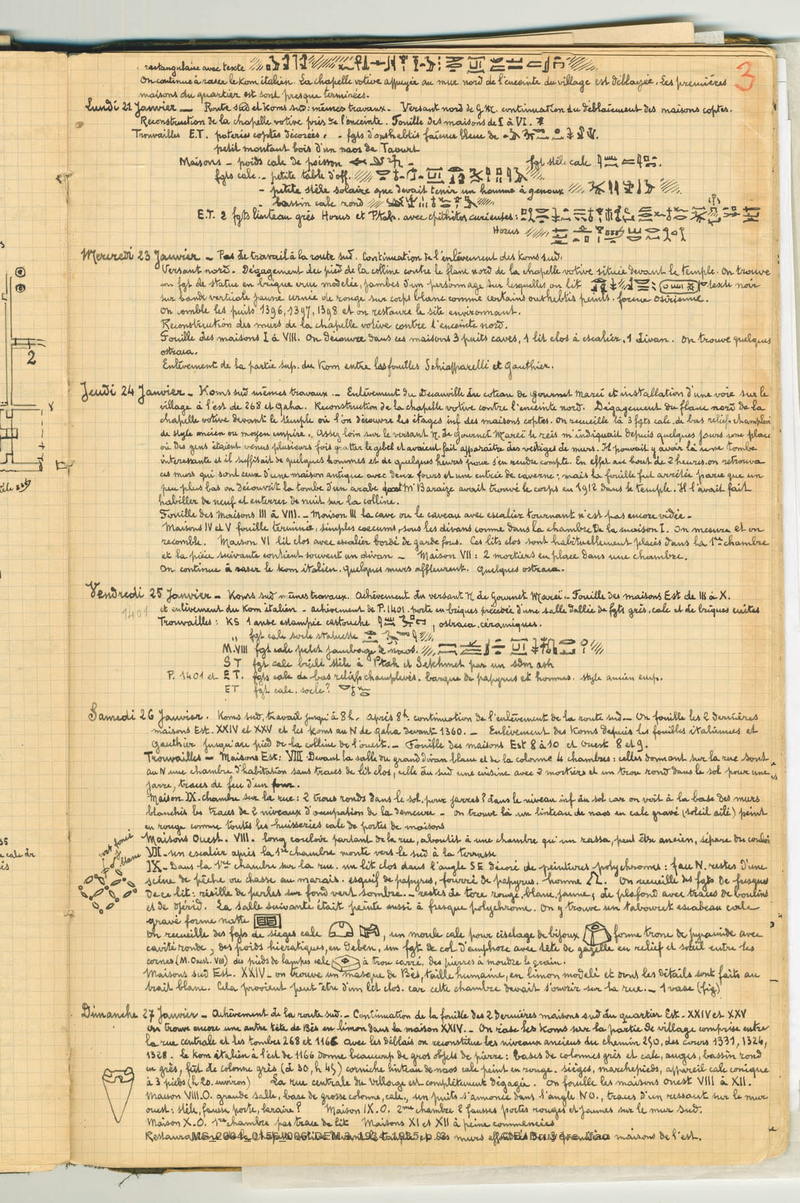 3
rectangulaire avec texte
On continue à raser le Kom italien. La chapelle votive appuyée au mur nord de l'enceinte du village est déblayée. Les premières
maisons du quartier est sont presque terminées.
Lundi 21 Janvier — Route sud et Koms sud: mêmes travaux. Versant nord de G.M. continuation du déblaiement des maisons coptes.
Reconstruction de la chapelle votive près de l'enceinte. Fouille des maisons de I à VI.
Trouvailles E.T. poteries coptes décorées, - fgts d'oushebtis faïence bleue de
petit montant bois d'un naos de Taourt
Maisons - poids calc. de poisson fgt stèl. calc
fgts calc. - petite table d'off.
- petite stèle solaire que devait tenir un homme à genoux
- bassin calc rond
E.T. 2 fgts linteau grès Horus et Ptah. avec épithètes curieuses:
Horus
Mercredi 23 Janvier — Pas de travail à la route sud. Continuation de l'enlèvement des Koms sud.
Versant nord. Dégagement du pied de la colline contre le flanc nord de la chapelle votive située devant le temple. On trouve
un fgt de statue en brique crue modelée, jambes d'un personnage sur lesquelles on lit texte noir
sur bande verticale jaune cernée de rouge sur corps blanc comme certains oushebtis peints. forme osirienne.
On comble les puits 1396, 1397, 1398 et on restaure le site environnant.
Reconstruction des murs de la chapelle votive contre l'enceinte nord.
Fouille des maisons I à VIII. On découvre dans ces maisons 3 puits caves, 1 lit clos à escalier, 1 divan. On trouve quelques
ostraca.
Enlèvement de la partie sup. du Kom entre les fouilles Schiaparelli et Gauthier.
Jeudi 24 Janvier — Koms sud mêmes travaux. - Enlèvement du Decauville du coteau de Gournet Mareï et installation d'une voie sur le
village à l'est de 268 et Gaha. Reconstruction de la chapelle votive contre l'enceinte nord. Dégagement du flanc nord de la
chapelle votive devant le temple où l'on découvre les étages inf. des maisons coptes. On recueille là 3 fgts calc. de bas relief champlevé
de style ancien ou moyen empire. Assez loin sur le versant N. de Gournet Mareï le reis m'indiquait depuis quelques jours une place
où des gens étaient venus plusieurs fois gratter le gebel et avaient fait apparaître des vestiges de murs. Il pouvait y avoir là une tombe
intéressante et il suffisait de quelques hommes et de quelques heures pour s'en rendre compte. En effet au bout de 2 heures on retrouva
ces murs qui sont ceux d'une maison antique avec deux fours et une entrée de caverne; mais la fouille fut arrêtée parce que un
peu plus bas on découvrit la tombe d'un arabe Mr Baraize avait trouvé le corps en 1912 dans le temple. Il l'avait fait
habiller de neuf et enterrer de nuit sur la colline.
Fouille des maisons III à VIII. - Maison III la cave ou le caveau avec escalier tournant n'est pas encore vidée. -
Maisons IV et V fouille terminée, simples caecums, sous les divans comme dans la chambre de la maison I. On mesure et on
recomble. Maison VI lit clos avec escalier bordé de garde fous. Ces lits clos sont habituellement placés dans la 1ère chambre
et la pièce suivante contient souvent un divan - Maison VII: 2 mortiers en place dans une chambre.
On continue à raser le Kom italien. Quelques murs affleurent. Quelques ostraca.
Vendredi 25 Janvier — Koms sud mêmes travaux. Achèvement du versant N. de Gournet Mareï - Fouille des maisons Est de III à X.
1401
et enlèvement du Kom italien - achèvement de P.1401. porte en briques précédée d'une salle dallée de fgts grès, calc et de briques cuites
Trouvailles: KS 1 anse estampée cartouche, ostraca, céramiques.
" fgt calc socle statuette
M.VIII fgt calc petit jambage de naos.
S T fgt calc brûlé stèle à Ptah et Sekhmet par un sdm ash
P. 1401 et E.T. fgts calc de bas reliefs champlevés, barque de papyrus et hommes. style ancien emp.
ET fgt calc. socle?
Samedi 26 Janvier. Koms sud, travail jusqu'à 8h. après 8h. continuation de l'enlèvement de la route sud. - On fouille les 2 dernières
maisons Est. XXIV et XXV et les Koms au N de Gaha devant 1360. - Enlèvement des Koms depuis les fouilles italiennes et
Gauthier jusqu'au pied de la colline de l'ouest. - Fouille des maisons Est 8 à 10 et Ouest 8 et 9.
Trouvailles - Maisons Est: VIII Devant la salle du grand divan blanc et de la colonne 4 chambres: celles donnant sur la rue sont
au N une chambre d'habitation sans traces de lit clos, celle du sud une cuisine avec 2 mortiers et un trou rond dans le sol pour une
jarre, traces de feu d'un four.
Maison IX. chambre sur la rue: 2 trous ronds dans le sol, pour jarres? dans le niveau inf du sol car on voit à la base des murs
blanchis les traces de 2 niveaux d'occupation de la demeure - On trouve là un linteau de naos en calc gravé (soleil ailé) peint
en rouge comme toutes les huisseries calc de portes de maisons
Maisons Ouest. VIII. long couloir partant de la rue, aboutit à une chambre qu'un rassa, peut être ancien, sépare du couloir
VII. un escalier après la 1ère chambre monte vers le sud à la terrasse
IX. Dans la 1ère chambre sur la rue. un lit clos dans l'angle SE décoré de peintures polychromes: face N. restes d'une
scène de pêche ou chasse au marais. esquif de papyrus, fourré de papyrus, homme. On recueille des fgts de fresques
de ce lit: résille de perles sur fond vert sombre. - restes de tore rouge, blanc, jaune, de plafond avec traces de boulins
et de djérid. La salle suivante était peinte aussi à fresque polychrome. On y trouve un tabouret escabeau calc
gravé forme natte
On recueille des fgts de sièges calc, un moule calc pour ciselage de bijoux forme tronc de pyramide avec
cavité ronde, des poids hiératiques, en Deben, un fgt de col d'amphore avec tête de gazelle en relief et soleil entre les
cornes (M. Ouest. VIII) des pieds de lampes calc à trou carré, des pierres à moudre le grain.
Maisons sud Est. XXIV - on trouve un masque de Bès, taille humaine, en limon modelé et dont les détails sont faits au
trait blanc. Cela provient peut être d'un lit clos. car cette chambre devait s'ouvrir sur la rue. - 1 vase (fig)
Dimanche 27 Janvier - Achèvement de la route sud. - Continuation de la fouille des 2 dernières maisons sud du quartier Est - XXIV et XXV
On trouve encore une autre tête de Bès en limon dans la maison XXIV. - On rase les Koms sur la partie de village comprise entre
la rue centrale et les tombes 268 et 1166 avec les déblais on reconstitue les niveaux anciens du chemin 250, des cours 1331, 1326,
1328. Le Kom italien à l'est de 1166 donne beaucoup de gros objets de pierre: bases de colonnes grès et calc, auges, bassin rond
en grès, fût de colonne grès (d 30, h 45) corniche linteau de naos calc peint en rouge. sièges, marchepieds, appareil calc conique
à 3 pieds (h. environ) La rue centrale du Village est complètement dégagée. On fouille les maisons Ouest VIII à XII.
Maison VIII.O. grande salle, base de grosse colonne, calc, un puits s'amorce dans l'angle NO., traces d'un ressaut sur le mur
ouest: stèle, fausse porte, laraire? Maison IX.O. 2ème chambre 2 fausses portes rouges et jaunes sur le mur Sud.
Maison X.O. 1ère chambre pas trace de lit Maisons XI et XII à peine commencées
maisons de l'est.